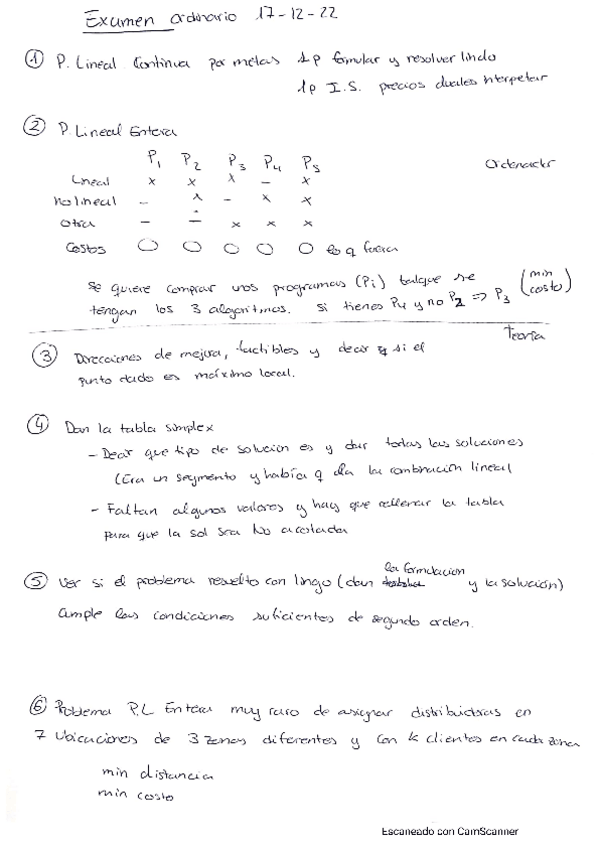 Examen ordinario 17-12-22
① P. Lineal Continua por metas 1p formular y resolver lindo
1p I.S. precios duales interpetar
② P. Lineal Entera
P1 P2 P3 P4 P5 Ordenador
Lineal x x x - x
No lineal - x - x x
Otra - - x x x
Costos O O O O O lo q fuera
Se quiere comprar unos programas (Pi) talque se
tengan los 3 algoritmos. Si tienes P4 y no P2 => P3 (min costo)
Teoría
③ Direcciones de mejora, factibles y decir si el
punto dado es máximo local.
④ Dan la tabla simplex
- Decir que tipo de solución es y dar todas las soluciones
(Era un segmento y había q da la combinación lineal
- Faltan algunos valores y hay que rellenar la tabla
para que la sol sea No acotada
⑤ Ver si el problema resuelto con lingo (dan la formulación y la solución)
cumple las condiciones suficientes de segundo orden.
⑥ Problema P.L Entera muy raro de asignar distribuidoras en
7 ubicaciones de 3 zonas diferentes y con k clientes en cada zona
min distancia
min costo
Escaneado con CamScanner